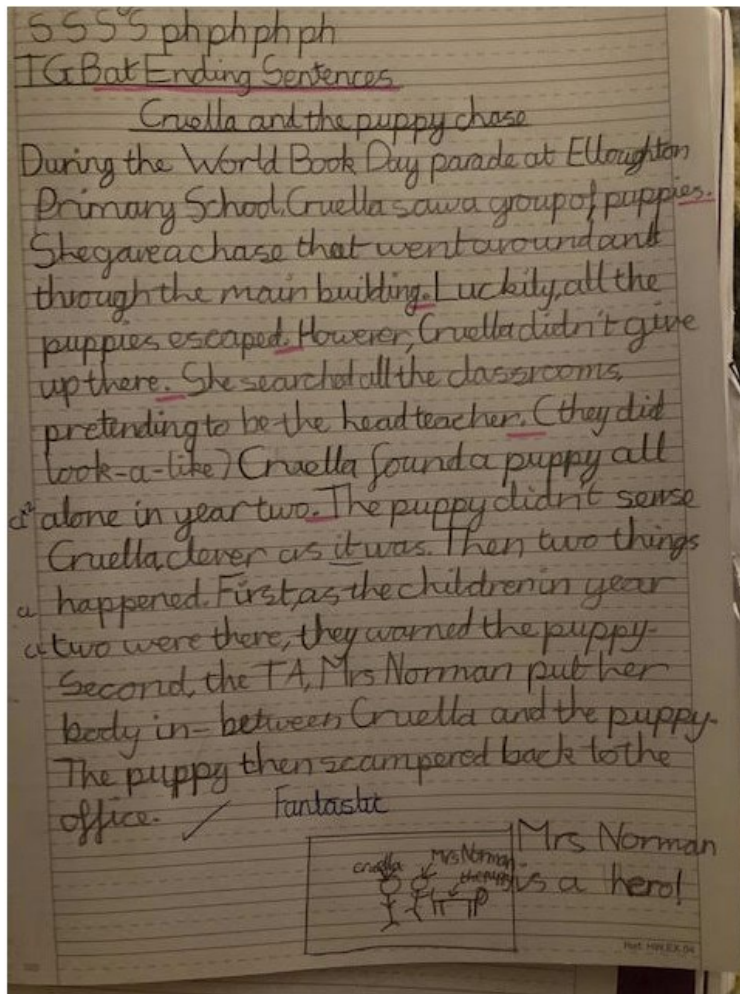 S S S S ph ph ph ph
TGBat Ending Sentences
Cruella and the puppy chase
During the World Book Day parade at Elloughton
Primary School, Cruella saw a group of puppies.
She gave a chase that went around and
through the main building. Luckily, all the
puppies escaped. However, Cruella didn't give
up there. She searched all the classrooms,
pretending to be the head teacher. (they did
look-a-like) Cruella found a puppy all
alone in year two. The puppy didn't sense
Cruella, clever as it was. Then two things
a happened. First, as the children in year
a two were there, they warned the puppy.
Second, the TA, Mrs Norman put her
body in-between Cruella and the puppy.
The puppy then scampered back to the
office.
Fantastic
Mrs Norman
is a hero!
Cruella
Mrs Norman
the puppy